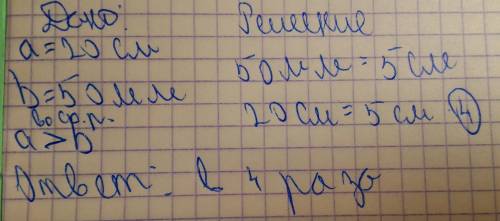 Дано:
a=20 см
b=50 мм
во ск. р.
a>b
Решение
50 мм=5 см
20 см=5 см 4
Ответ: в 4 раза